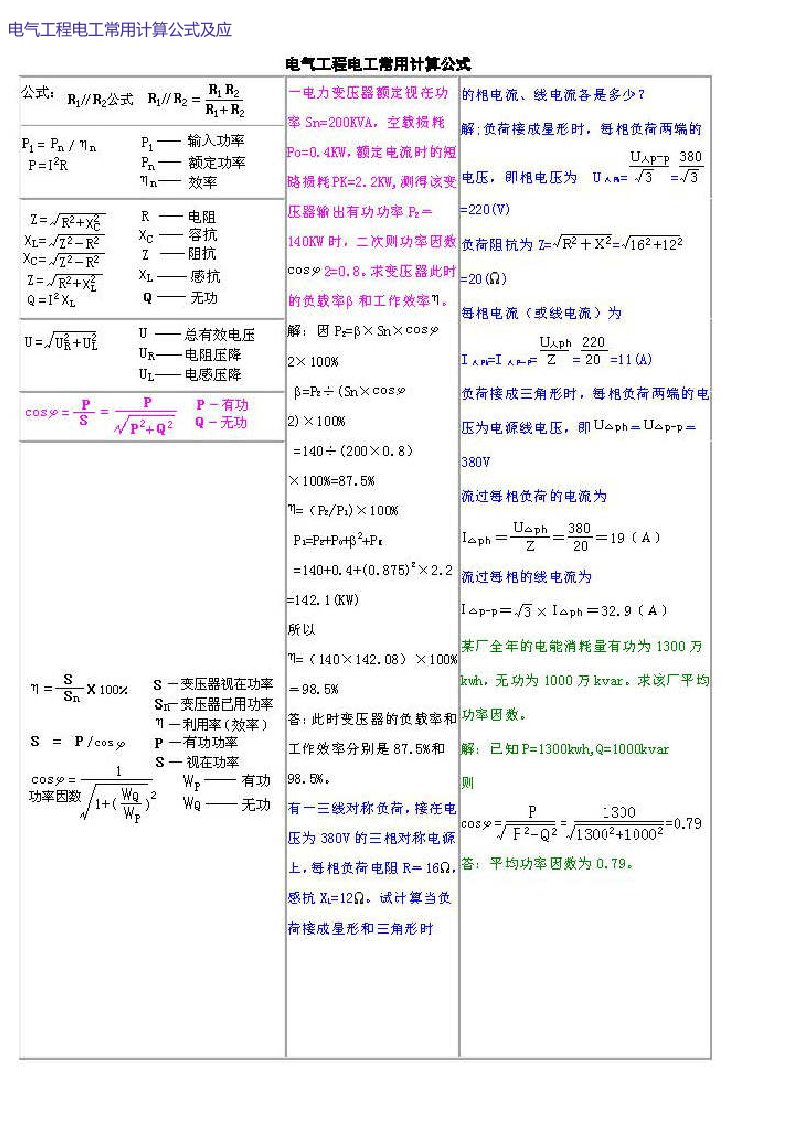 电气工程电工常用计算公式及应
电气工程电工常用计算公式
公式： R₁//R₂公式 R₁//R₂ = R₁R₂ / R₁+R₂
P₁ = Pₙ / ηₙ
P=I²R
P₁ —— 输入功率
Pₙ —— 额定功率
ηₙ —— 效率
Z=√R²+X_C²
X_L=√Z²−R²
X_C=√Z²−R²
Z=√R²+X_L²
Q=I²X_L
R —— 电阻
X_C —— 容抗
Z —— 阻抗
X_L —— 感抗
Q —— 无功
U=√U_R²+U_L²
U —— 总有效电压
U_R——电阻压降
U_L——电感压降
cosφ= P/S = P/√P²+Q²
P－有功
Q－无功
η= S/Sn X 100%
S = P/cosφ
cosφ= 1/√1+(W_Q/W_P)²
功率因数
S —变压器视在功率
Sn—变压器已用功率
η —利用率（效率）
P —有功功率
S — 视在功率
W_P —— 有功
W_Q —— 无功
一电力变压器额定视在功
率Sn=200KVA，空载损耗
Po=0.4KW，额定电流时的短
路损耗PK=2.2KW,测得该变
压器输出有功功率P₂＝
140KW时，二次则功率因数
cosφ2=0.8。求变压器此时
的负载率β和工作效率η。
解：因P₂=β×Sn×cosφ
2×100%
β=P₂÷(Sn×cosφ
2)×100%
=140÷(200×0.8)
×100%=87.5%
η=（P₂/P₁)×100%
P₁=P₂+P₀+β²+Pᴋ
=140+0.4+(0.875)²×2.2
=142.1(KW)
所以
η=（140×142.08）×100%
＝98.5%
答:此时变压器的负载率和
工作效率分别是87.5%和
98.5%。
有一三线对称负荷，接在电
压为380V的三相对称电源
上，每相负荷电阻R＝16Ω，
感抗X_L=12Ω。试计算当负
荷接成星形和三角形时
的相电流、线电流各是多少？
解:负荷接成星形时，每相负荷两端的
电压，即相电压为 U⅄ₚₕ= U⅄p-p/√3 = 380/√3
=220(V)
负荷阻抗为Z=√R²+X²=√16²+12²
=20(Ω)
每相电流（或线电流）为
I⅄ₚₕ=I⅄p-p= U⅄ph/Z = 220/20 =11(A)
负荷接成三角形时，每相负荷两端的电
压为电源线电压，即U△ph＝U△p-p＝
380V
流过每相负荷的电流为
I△ph＝U△ph/Z＝380/20＝19（A）
流过每相的线电流为
I△p-p＝√3×I△ph＝32.9（A）
某厂全年的电能消耗量有功为1300万
kwh，无功为1000万kvar。求该厂平均
功率因数。
解：已知P=1300kwh,Q=1000kvar
则
cosφ= P/√P²−Q² = 1300/√1300²+1000² =0.79
答：平均功率因数为0.79。